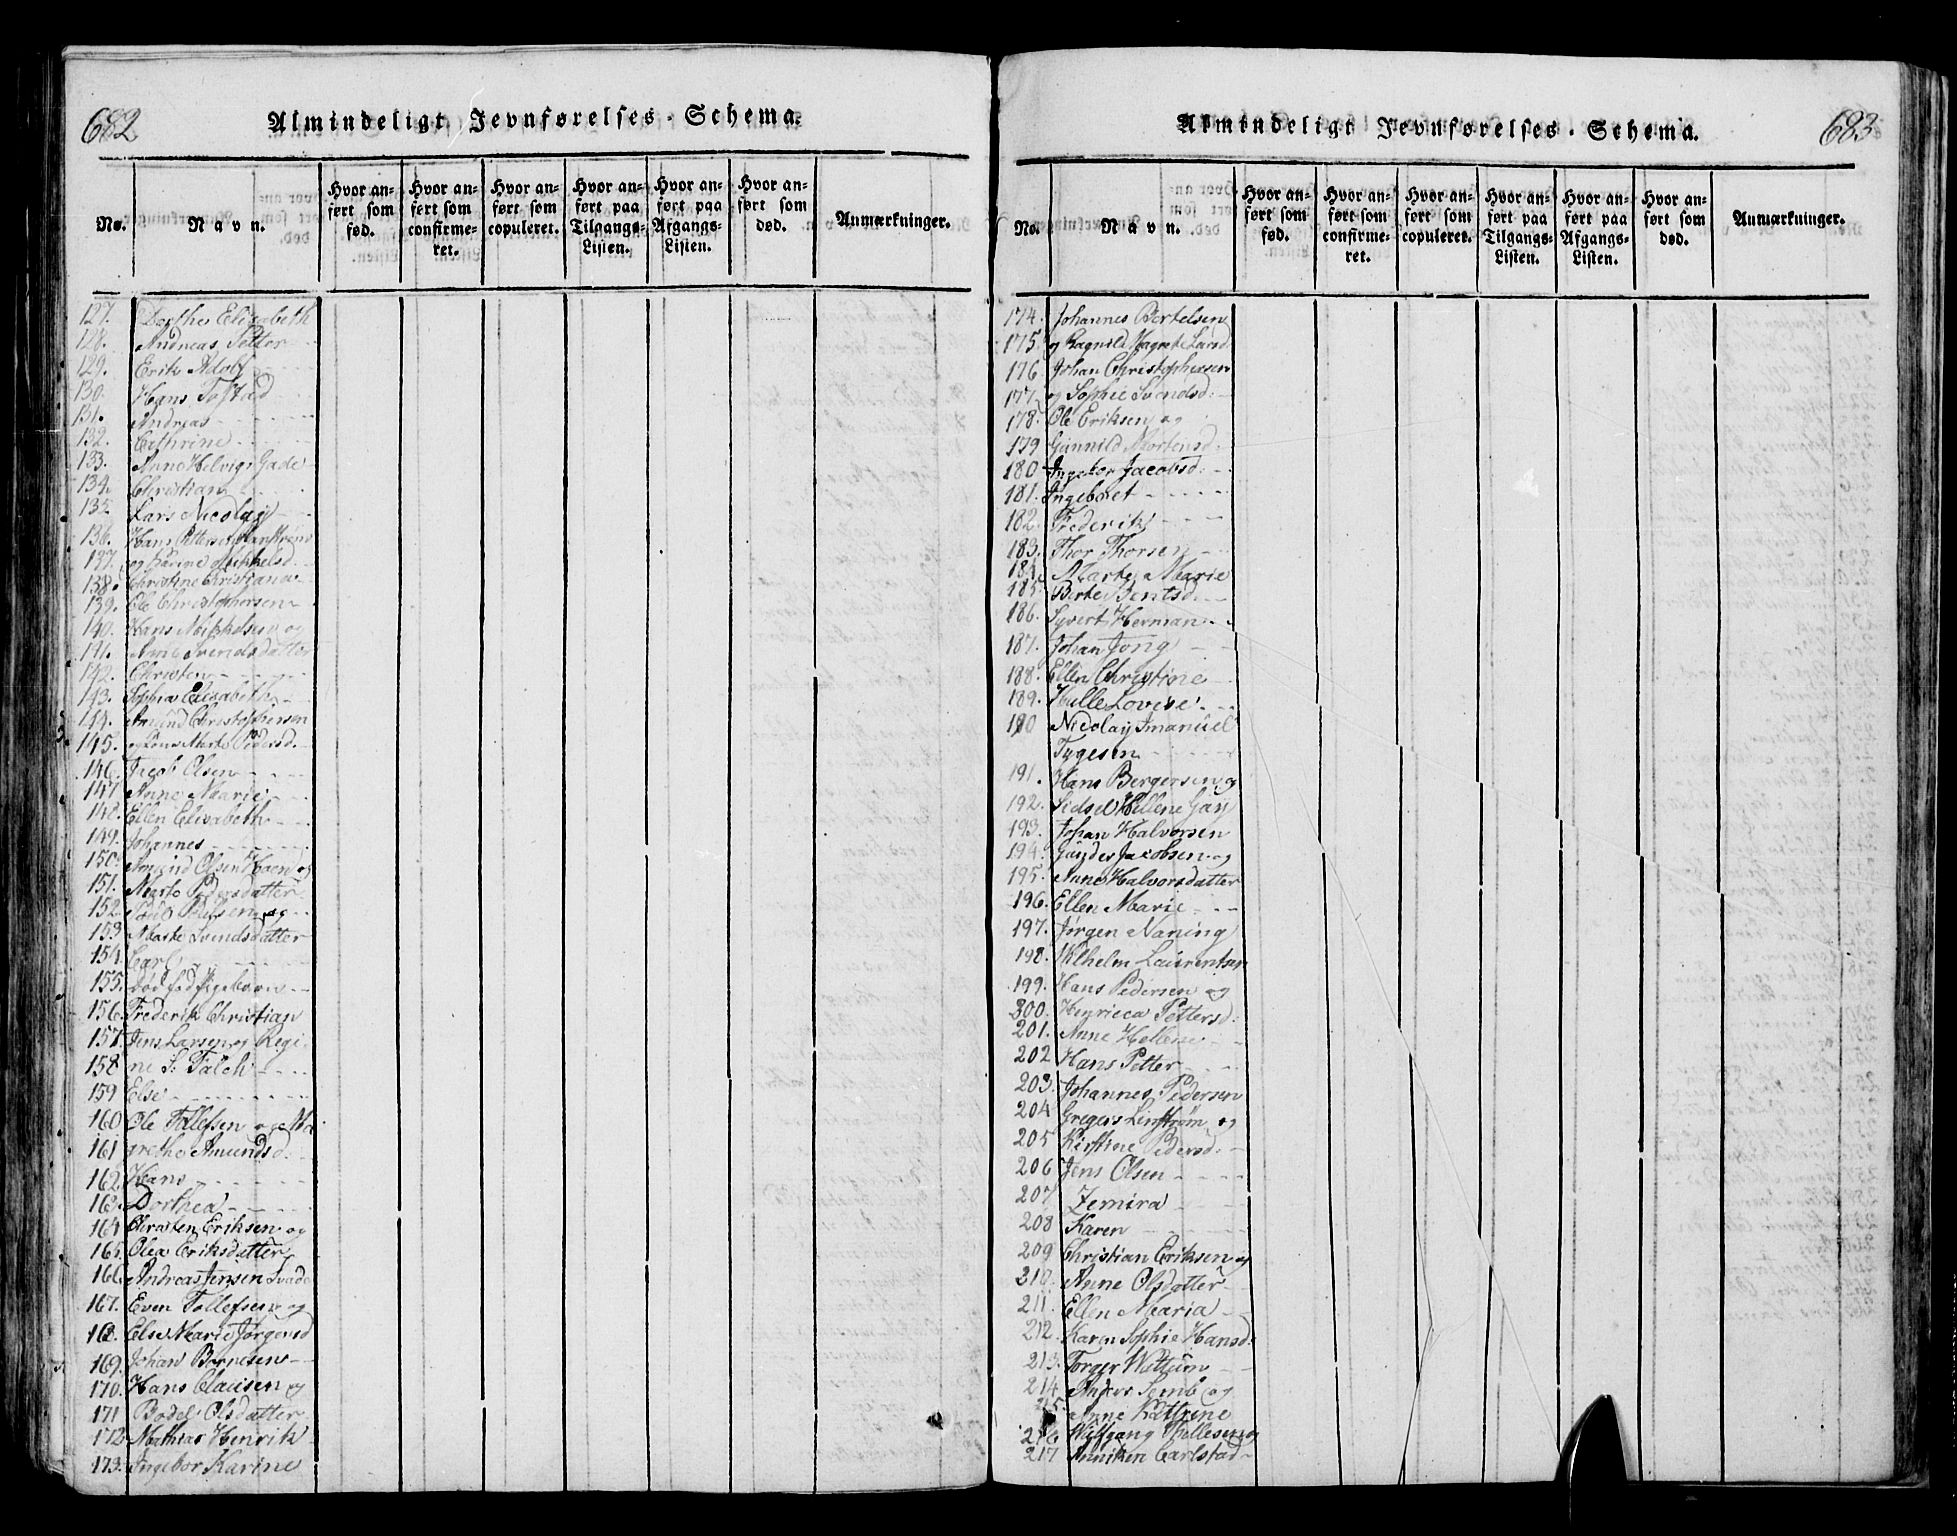 682
Almindeligt Jevnførelses-Schema.
No.
Navn.
Hvor anført som fød.
Hvor anført som confirmeret.
Hvor anført som copuleret.
Hvor anført paa Tilgangs-Listen.
Hvor anført paa Afgangs-Listen.
Hvor anført som død.
Anmærkninger.
127. Dorthe Elisabeth
128. Andreas Petter
129. Erik Adolf
130. Hans Tofstad
131. Andreas
132. Cathrine
133. Anne Helvig Gade
134. Christian
135. Lars Nicolay
136. Hans Petterson
137. og Karine Mikkelsd.
138. Christine Christiana
139. Ole Christophersen
140. Hans Mikkelsen og
141. Anne Svendsdatter
142. Christen
143. Sophie Elisabeth
144. Amund Christophersen
145. Marte Pedersd.
146. Jacob Olsen
147. Anne Marie
148. Ellen Elisabeth
149. Johannes
150. Amund Olsen Haen og
151. Marte Pedersdatter
152. Poul og
153. Marte Svendsdatter
154. Carl
155. Dødfød Pigebarn
156. Frederik Christian
157. Jens Larsen og Regi
158 ne S. Falch
159 Else
160 Ole Tollefsen og Ma
161 grethe Amundsd.
162 Hans
163. Dorthea
164 Christen Eriksen og
165. Olea Eriksdatter
166. Andreas Jensen
167. Even Tollefsen og
168. Else Marie Jørgensd
169. Johan Berntsen
170. Hans Clausen og
171 Bodel Olsdatter
172 Mathias Henrik
173. Ingebor Karine
Almindeligt Jevnførelses-Schema.
683
No.
Navn.
Hvor anført som fød.
Hvor anført som confirmeret.
Hvor anført som copuleret.
Hvor anført paa Tilgangs-Listen.
Hvor anført paa Afgangs-Listen.
Hvor anført som død.
Anmærkninger.
174. Johannes Bertelsen
175 og Ragnild Magret Larsd
176 Johan Christophersen
177 og Sophie Svendsd.
178. Ole Eriksen og
179 Gunnild Mortensd.
180 Ingebor Jacobsd.
181. Ingeboret
182. Frederik
183. Thor Thorsen
184 Marte Marie
185. Berte Bentsd.
186. Syvert Herman
187. Johan Jong
188. Ellen Christine
189. Hulle Lovise
190 Nicolay Imanuel
Tygesen
191. Hans Bergersen og
192. Sidsel Hellene Gay
193. Johan Halvorsen
194. Gunder Jacobsen og
195. Anne Halvorsdatter
196. Ellen Marie
197. Jørgen Naning
198. Wilhelm Laurentsen
199. Hans Pedersen og
300. Henricca Pettersd.
201. Anne Hellene
202 Hans Petter
203. Johannes Pedersen
204 Gregers Linstrøm og
205 Kirstine Pedersd.
206 Jens Olsen
207 Zemira
208 Karen
209 Christian Eriksen og
210. Anne Olsdatter
211. Ellen Maria
212. Karen Sophie Hansd.
213. Torger Wattum
214 Anders Semb og
215 Anne Kattrine
216 Wulfgang Thellesen og
217 Anniken Carlstad